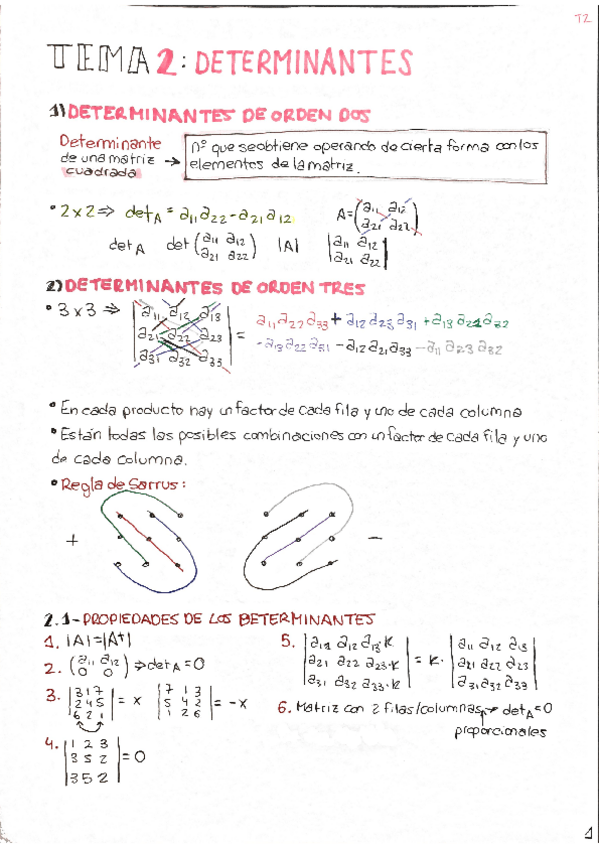 T2
TEMA 2: DETERMINANTES
1) DETERMINANTES DE ORDEN DOS
Determinante de una matriz cuadrada → nº que se obtiene operando de cierta forma con los elementos de la matriz.
• 2x2 ⇒ det A = a11 a22 - a21 a12
A = (a11 a12
a21 a22)
det A det (a11 a12
a21 a22) |A| |a11 a12
a21 a22|
2) DETERMINANTES DE ORDEN TRES
• 3x3 ⇒ |a11 a12 a13
a21 a22 a23
a31 a32 a33| =
a11 a22 a33 + a12 a23 a31 + a13 a21 a32
- a13 a22 a31 - a12 a21 a33 - a11 a23 a32
• En cada producto hay un factor de cada fila y uno de cada columna
• Están todas las posibles combinaciones con un factor de cada fila y uno
de cada columna.
• Regla de Sarrus:
+ −
2.1- PROPIEDADES DE LOS DETERMINANTES
1. |A|=|At|
2. (a11 a12
0 0) ⇒ det A = 0
3. |3 1 7
2 4 5
6 2 1| = x |7 1 3
5 4 2
1 2 6| = -x
4. |1 2 3
3 5 2
3 5 2| = 0
5. |a11 a12 a13·k
a21 a22 a23·k
a31 a32 a33·k| = k· |a11 a12 a13
a21 a22 a23
a31 a32 a33|
6. Matriz con 2 filas/columnas proporcionales → det A = 0
1